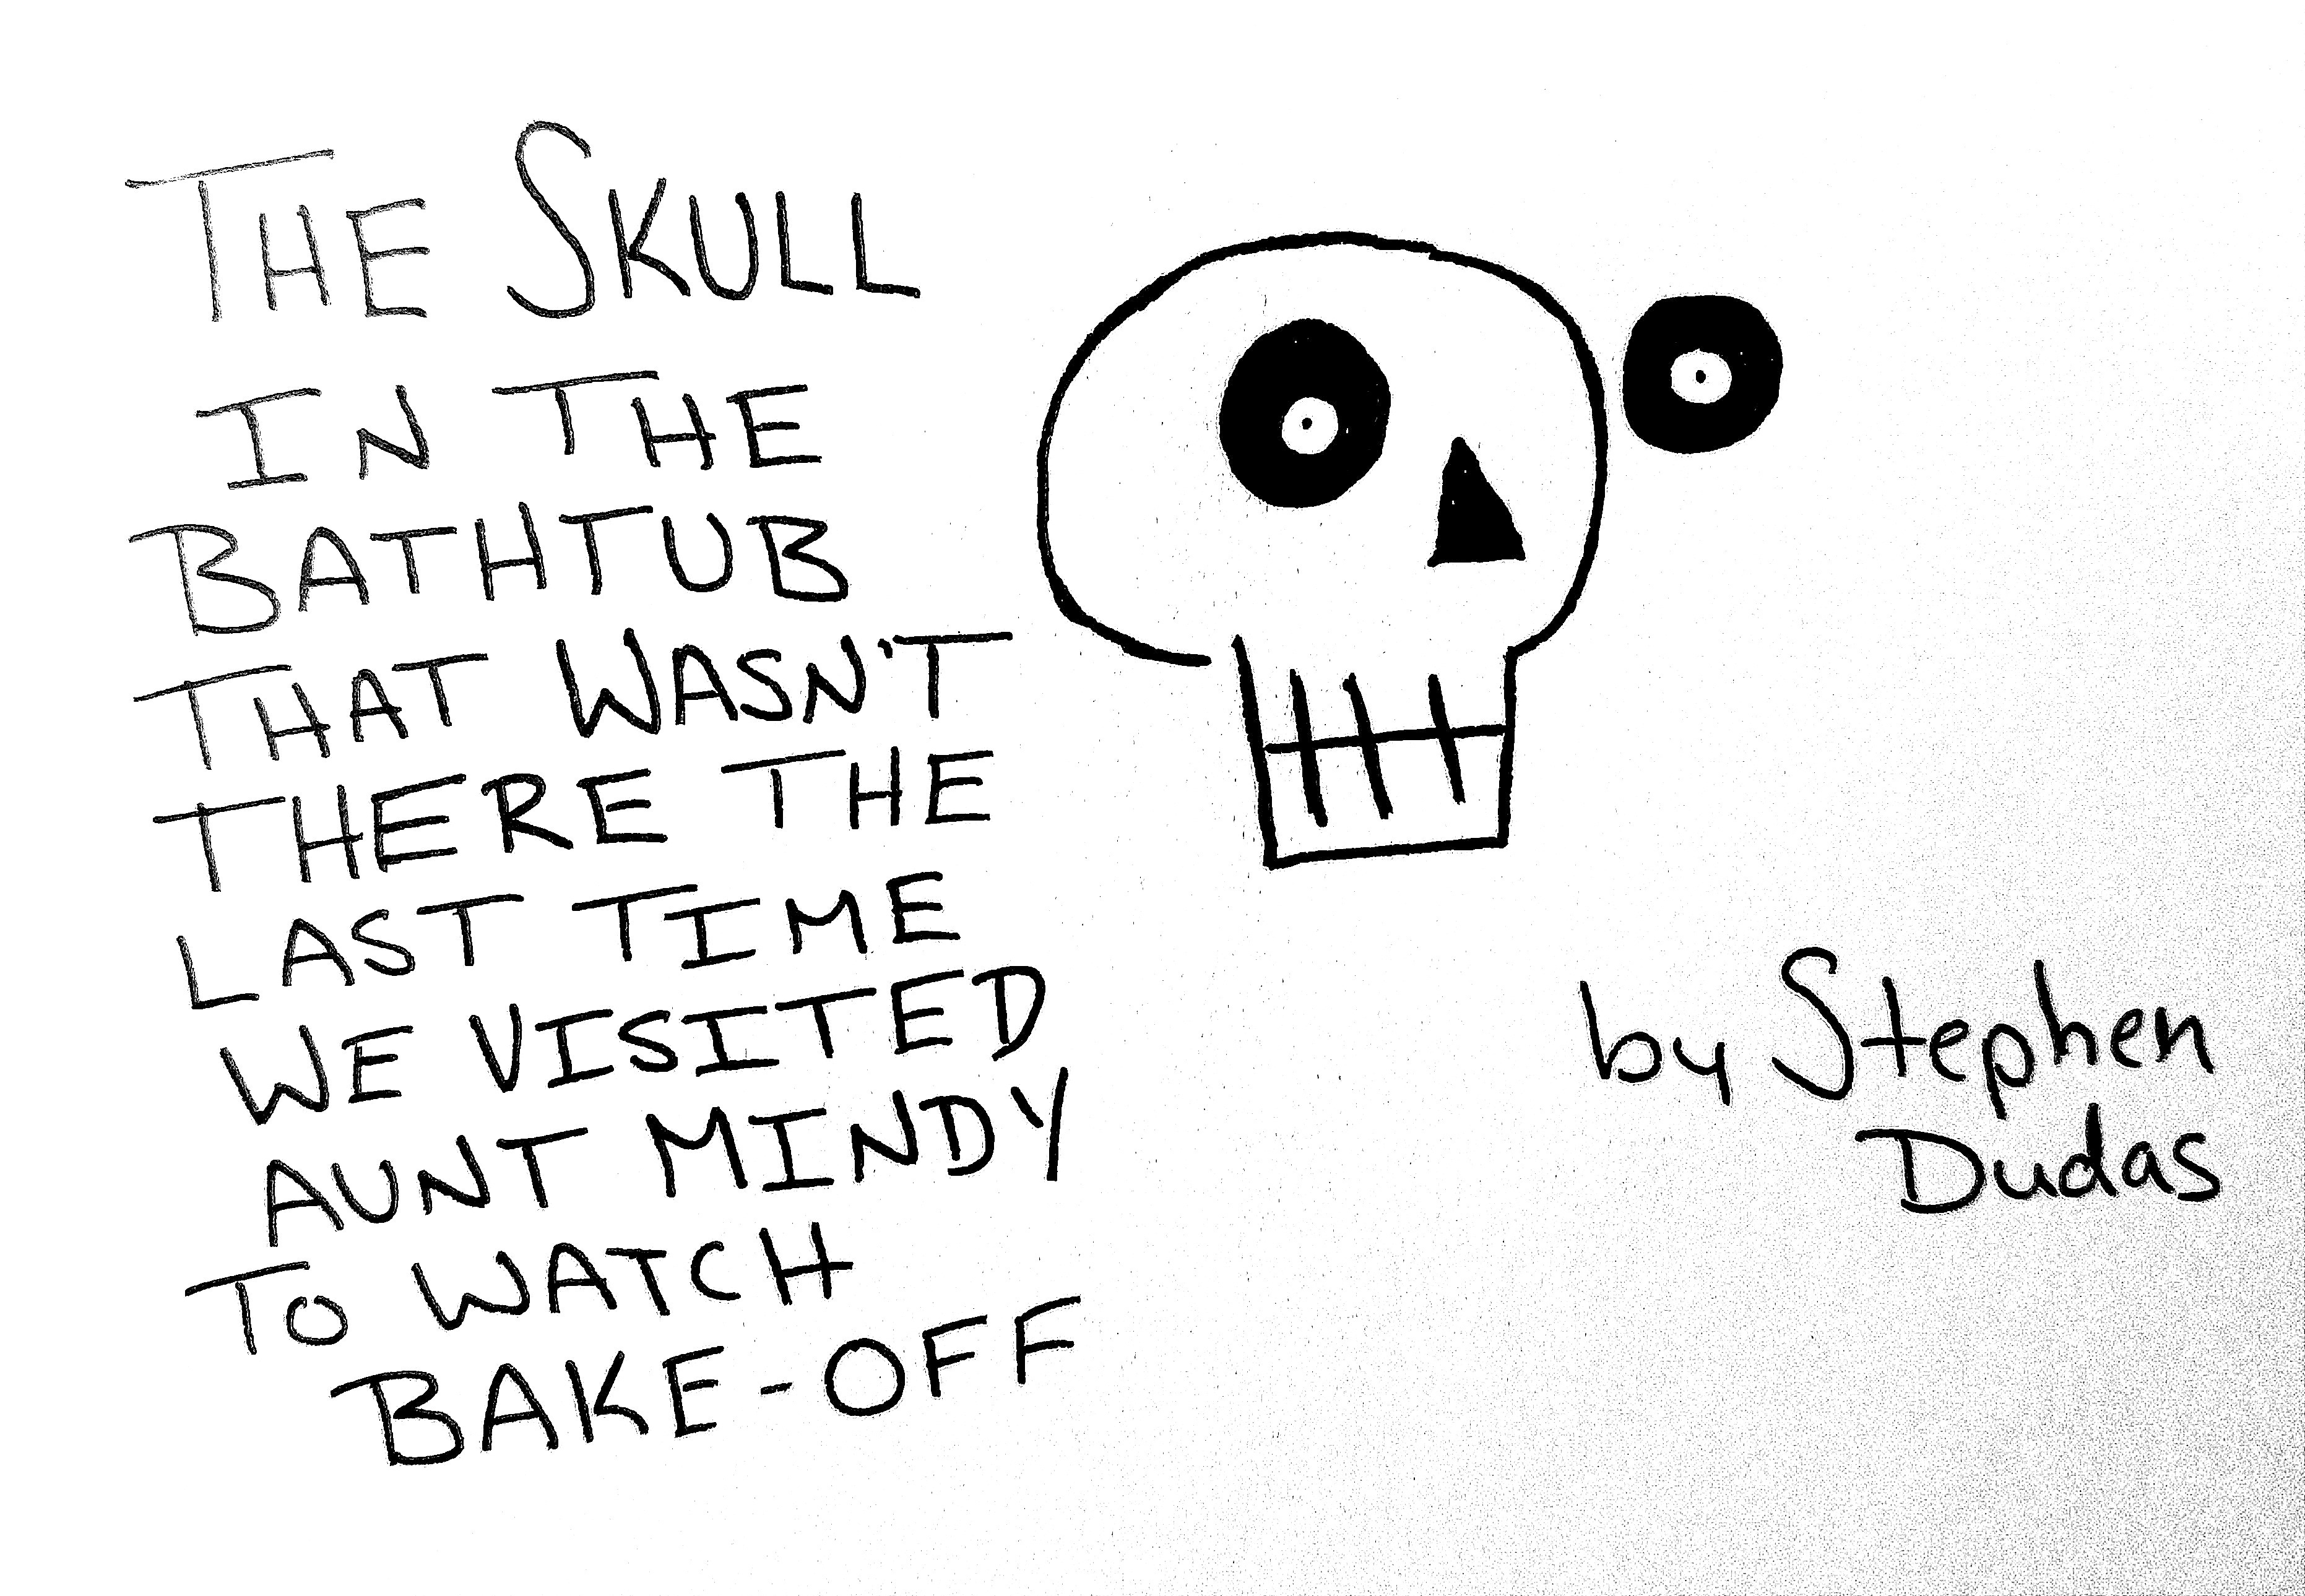 THE SKULL
IN THE
BATHTUB
THAT WASN'T
THERE THE
LAST TIME
WE VISITED
AUNT MINDY
TO WATCH
BAKE-OFF
by Stephen
Dudas